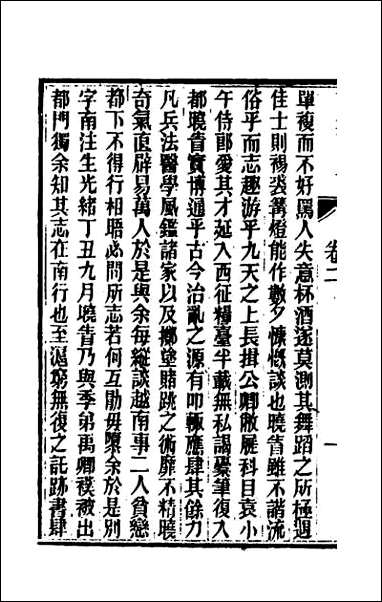 卷二
一
單複而不好罵人失意杯酒遂莫測其舞蹈之所極遇
佳士則裼裘篝燈能作數夕慷慨談也曉眚雖不諧流
俗乎而志趣游乎九天之上長揖公卿敝屣科目袁小
午侍郎愛其才延入西征糧臺半載無私謁櫜筆復入
都曉眚實博通乎古今治亂之源有叩輒應肆其餘力
凡兵法醫學風鑑諸家以及擲塗賭跳之術靡不精曉
奇氣直辟易萬人於是與余每縱談越南事二人貧戀
都下不得行相晤必問所志若何互勖毋墮余於是別
字南注生光緒丁丑九月曉眚乃與季弟禹卿襆被出
都門獨余知其志在南行也至滬窮無復之託跡書肆